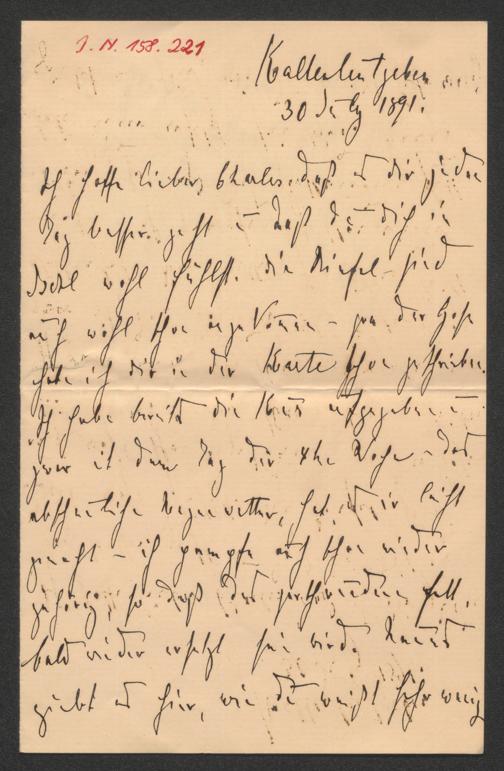 I. N. 158.221
Kaltenleutgeben
30 July 1891.
Ich hoffe lieber Charles, daß es dir jeden
Tag besser geht u daß du dich in
Ischl wohl fühlst. die Stiefel sind
auch wohl schon angekommen – von der Hose
habe ich dir in der Karte schon geschrieben.
Ich habe bereits die Kur aufgegeben u
zwar mit dem Tag der 4ten Woche – das
abscheuliche Regenwetter, hat es mir leicht
gemacht – ich pampfe auch schon wieder
gehörig, so daß das geschwundene Fett,
bald wieder ersetzt sein wird. Neues
giebt es hier, wie du weißt sehr wenig